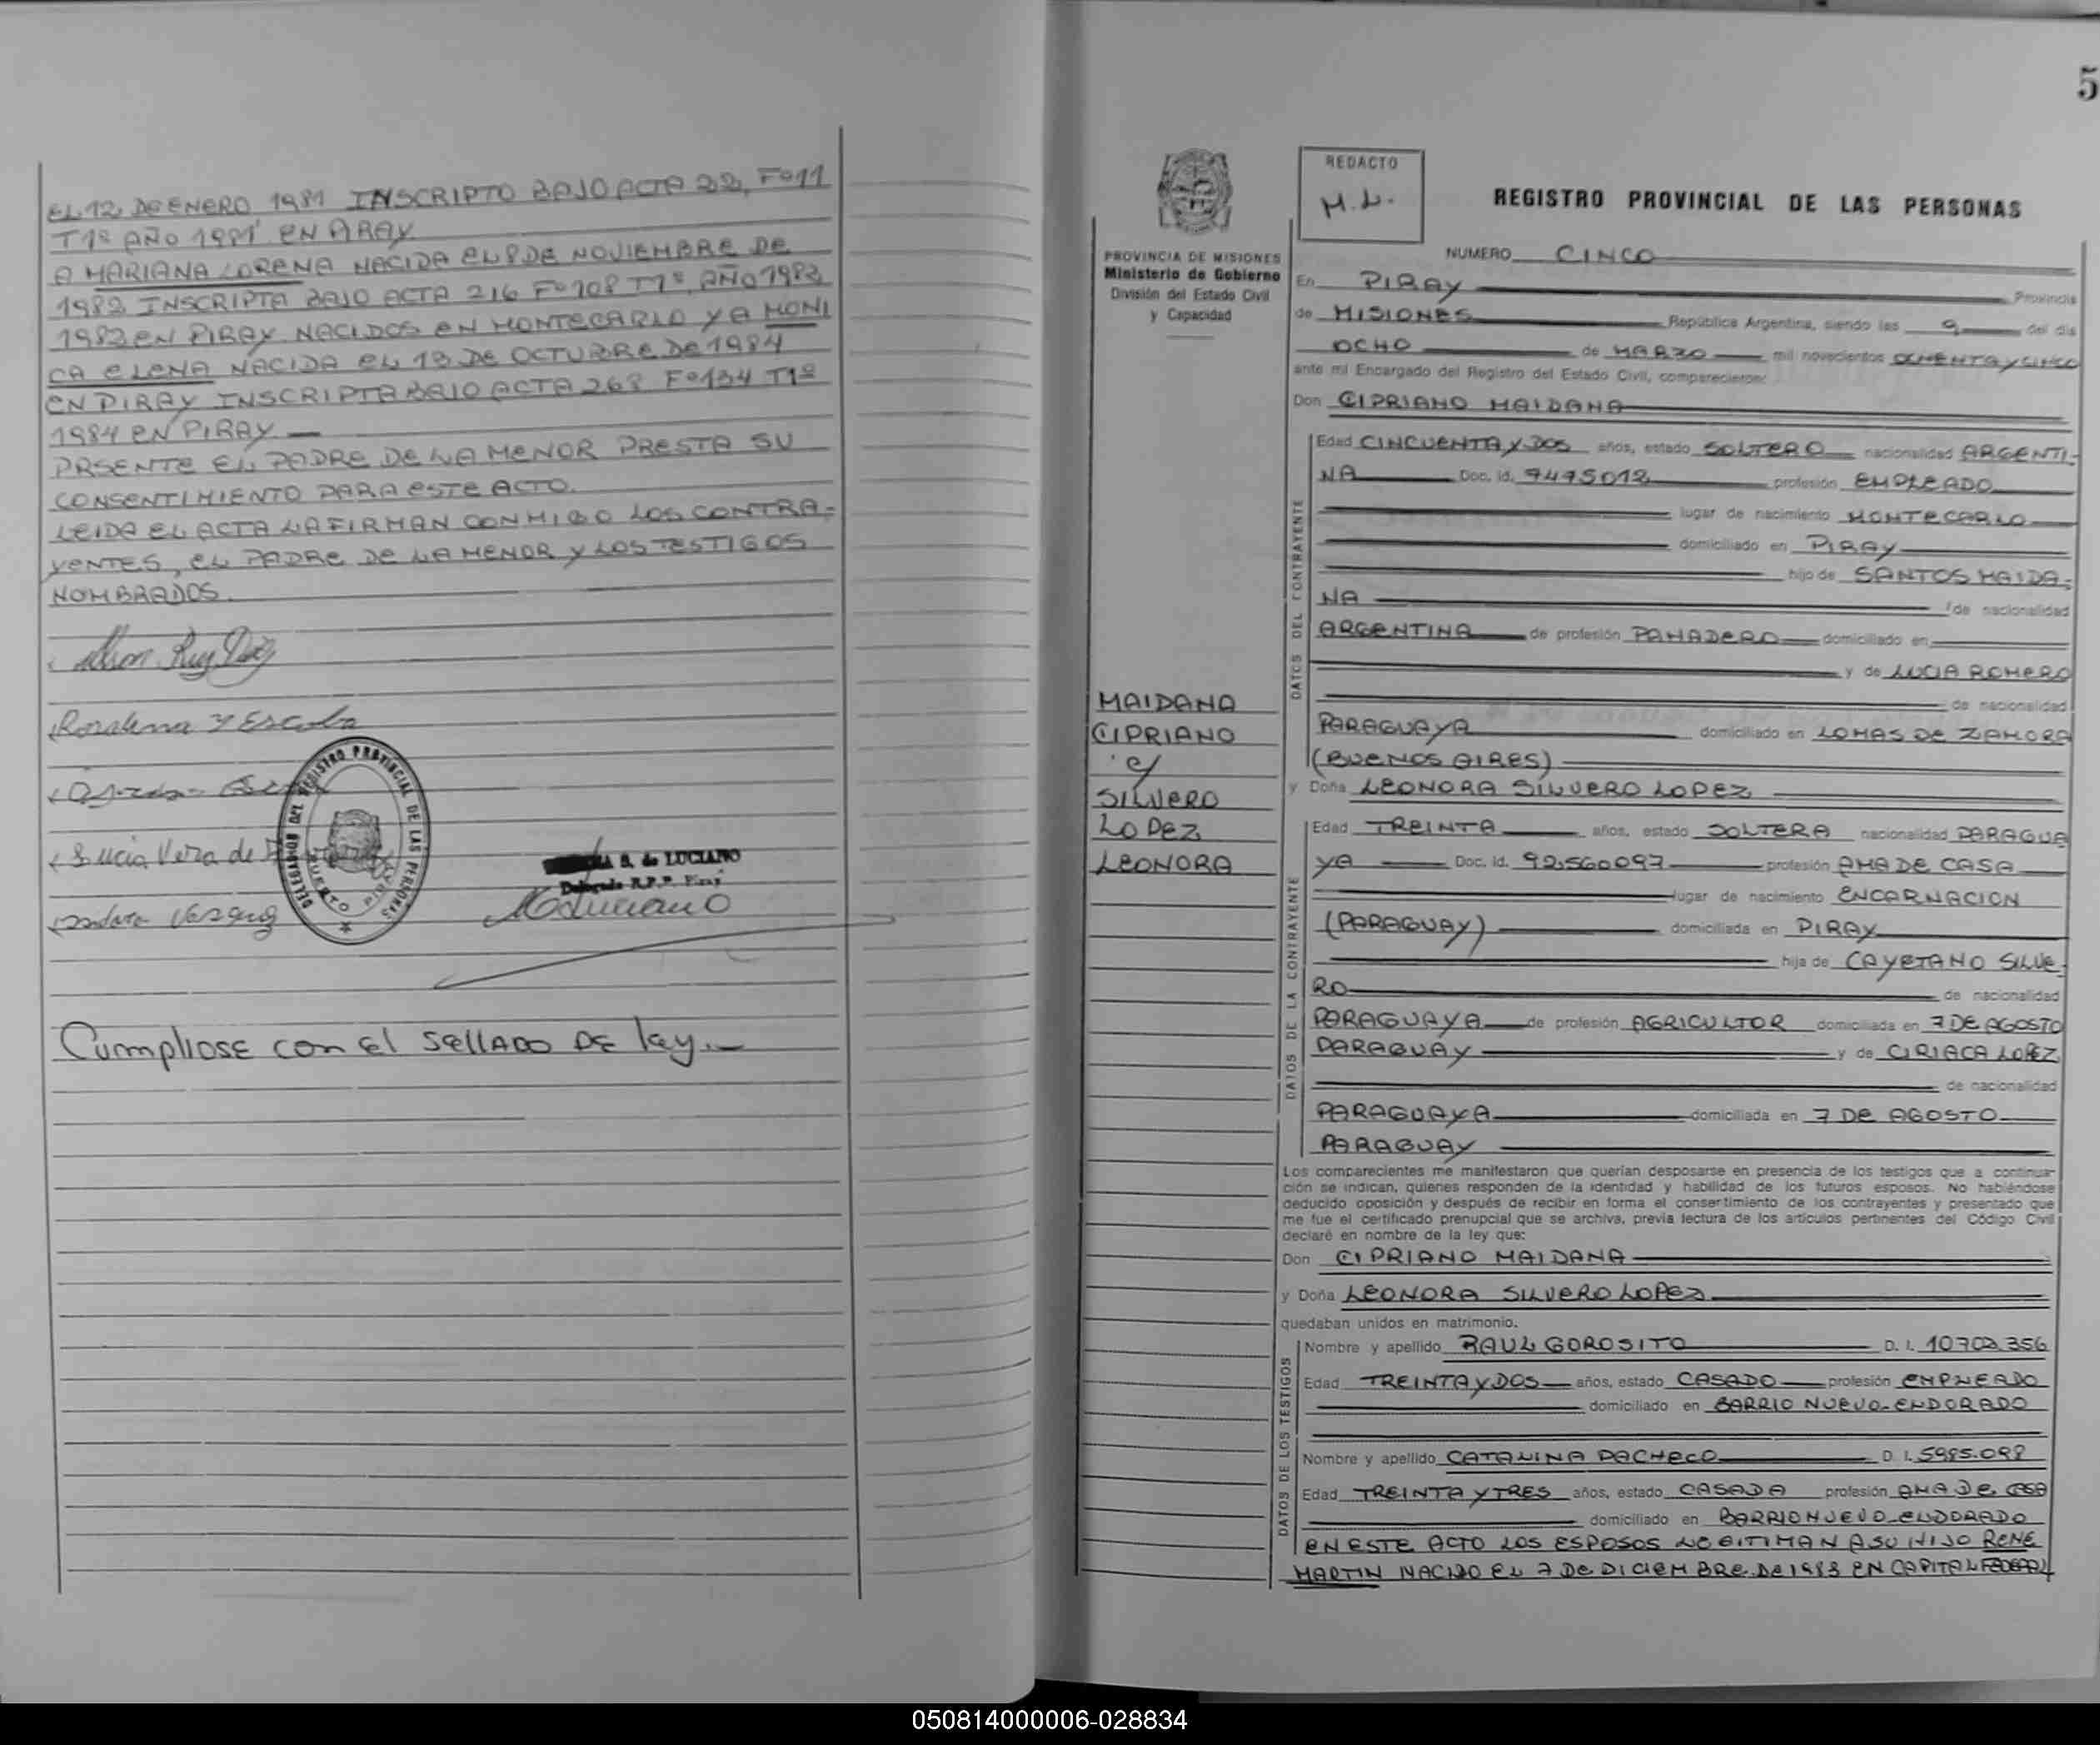 EL 12 DE ENERO 1981 INSCRIPTO BAJO ACTA 22, Fº 11
T1º AÑO 1981 EN PIRAY
A MARIANA LORENA NACIDA EL 8 DE NOVIEMBRE DE
1982 INSCRIPTA BAJO ACTA 216 Fº 108 T1º, AÑO 1982
1982 EN PIRAY NACIDOS EN MONTECARLO Y A MONI
CA ELENA NACIDA EL 18 DE OCTUBRE DE 1984
EN PIRAY INSCRIPTA BAJO ACTA 268 Fº 134 T1º
1984 EN PIRAY
PRSENTE EL PADRE DE LA MENOR PRESTA SU
CONSENTIMIENTO PARA ESTE ACTO.
LEIDA EL ACTA LA FIRMAN CONMIGO LOS CONTRA-
YENTES, EL PADRE DE LA MENOR Y LOS TESTIGOS
NOMBRADOS.
Lucia Vera de
DELEGACION DEL REGISTRO PROVINCIAL DE LAS PERSONAS
PUERTO PIRAY
S. de LUCIANO
Delegada R.P.P. Piray
Cumpliose con el sellado de ley.-
5
PROVINCIA DE MISIONES
Ministerio de Gobierno
División del Estado Civil
y Capacidad
MAIDANA
CIPRIANO
c/
SILVERO
LOPEZ
LEONORA
REDACTO
M.L.
REGISTRO PROVINCIAL DE LAS PERSONAS
NUMERO CINCO
En PIRAY Provincia
de MISIONES República Argentina, siendo las 9 del día
OCHO de MARZO mil novecientos OCHENTA Y CINCO
ante mi Encargado del Registro del Estado Civil, comparecieron:
Don CIPRIANO MAIDANA
DATOS DEL CONTRAYENTE
Edad CINCUENTA Y DOS años, estado SOLTERO nacionalidad ARGENTI-
NA Doc. Id. 7495012 profesión EMPLEADO
lugar de nacimiento MONTECARLO
domiciliado en PIRAY
hijo de SANTOS MAIDA-
NA de nacionalidad
ARGENTINA de profesión PANADERO domiciliado en
y de LUCIA ROMERO
de nacionalidad
PARAGUAYA domiciliado en LOMAS DE ZAMORA
(BUENOS AIRES)
y Doña LEONORA SILVERO LOPEZ
DATOS DE LA CONTRAYENTE
Edad TREINTA años, estado SOLTERA nacionalidad PARAGUA
YA Doc. Id. 92.560097 profesión AMA DE CASA
lugar de nacimiento ENCARNACION
(PARAGUAY) domiciliada en PIRAY
hija de CAYETANO SILVE-
RO de nacionalidad
PARAGUAYA de profesión AGRICULTOR domiciliada en 7 DE AGOSTO
PARAGUAY y de CIRIACA LOPEZ
de nacionalidad
PARAGUAYA domiciliada en 7 DE AGOSTO
PARAGUAY
Los comparecientes me manifestaron que querían desposarse en presencia de los testigos que a continua-
ción se indican, quienes responden de la identidad y habilidad de los futuros esposos. No habiéndose
deducido oposición y después de recibir en forma el consertimiento de los contrayentes y presentado que
me fue el certificado prenupcial que se archiva, previa lectura de los artículos pertinentes del Código Civil
declaré en nombre de la ley que:
Don CIPRIANO MAIDANA
y Doña LEONORA SILVERO LOPEZ
quedaban unidos en matrimonio.
DATOS DE LOS TESTIGOS
Nombre y apellido RAUL GOROSITO D. I. 10702.356
Edad TREINTA Y DOS años, estado CASADO profesión EMPLEADO
domiciliado en BARRIO NUEVO-ELDORADO
Nombre y apellido CATALINA PACHECO D. I. 5985.098
Edad TREINTA Y TRES años, estado CASADA profesión AMA DE CASA
domiciliado en BARRIO NUEVO-ELDORADO
EN ESTE ACTO LOS ESPOSOS LEGITIMAN A SU HIJO RENE
MARTIN NACIDO EL 7 DE DICIEMBRE DE 1983 EN CAPITAL FEDERAL
050814000006-028834